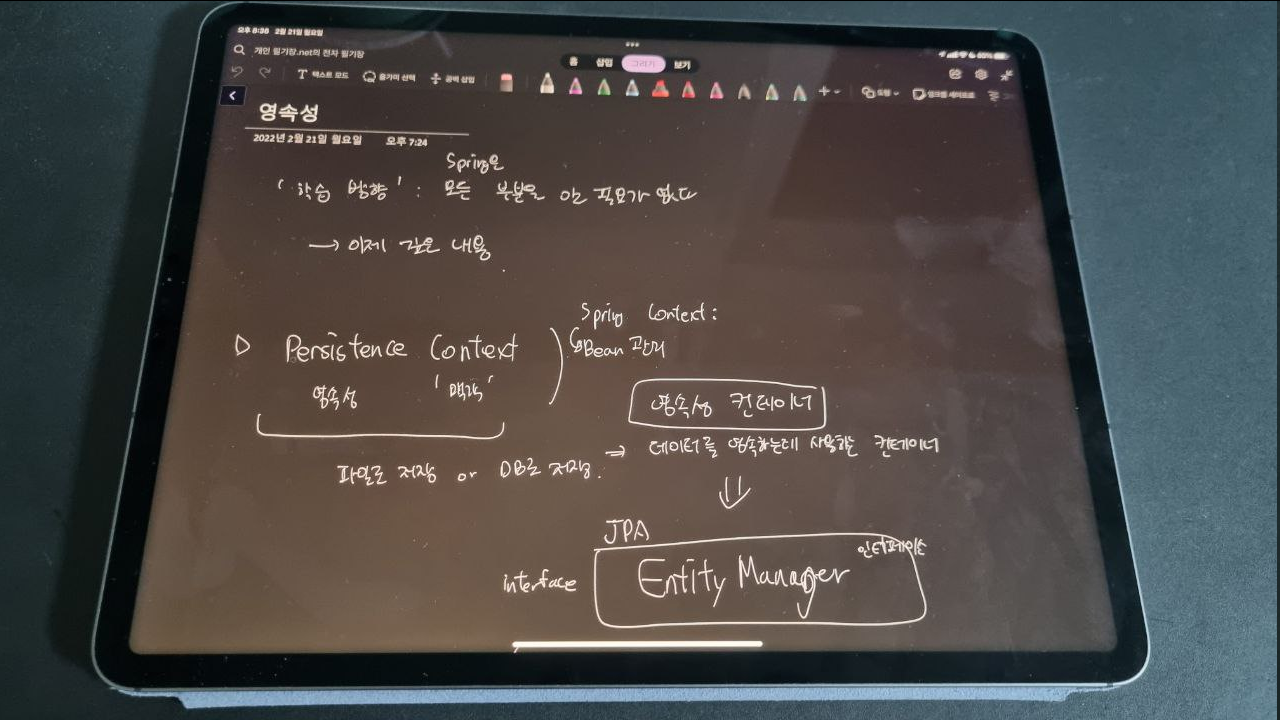 오후 8:36 2월 21일 월요일
개인 필기장.net의 전자 필기장
홈 삽입 그리기 보기
텍스트 모드 올가미 선택 공백 삽입 도형
영속성
2022년 2월 21일 월요일 오후 7:24
Spring은
'학습 방향' : 모든 부분을 알 필요가 없다
→ 이제 깊은 내용
Spring Context:
▷ Persistence Context
Bean 관리
영속성 '맥락'
영속성 컨테이너
→ 데이터를 영속하는데 사용하는 컨테이너
파일로 저장 or DB로 저장.
JPA
인터페이스
interface Entity Manager